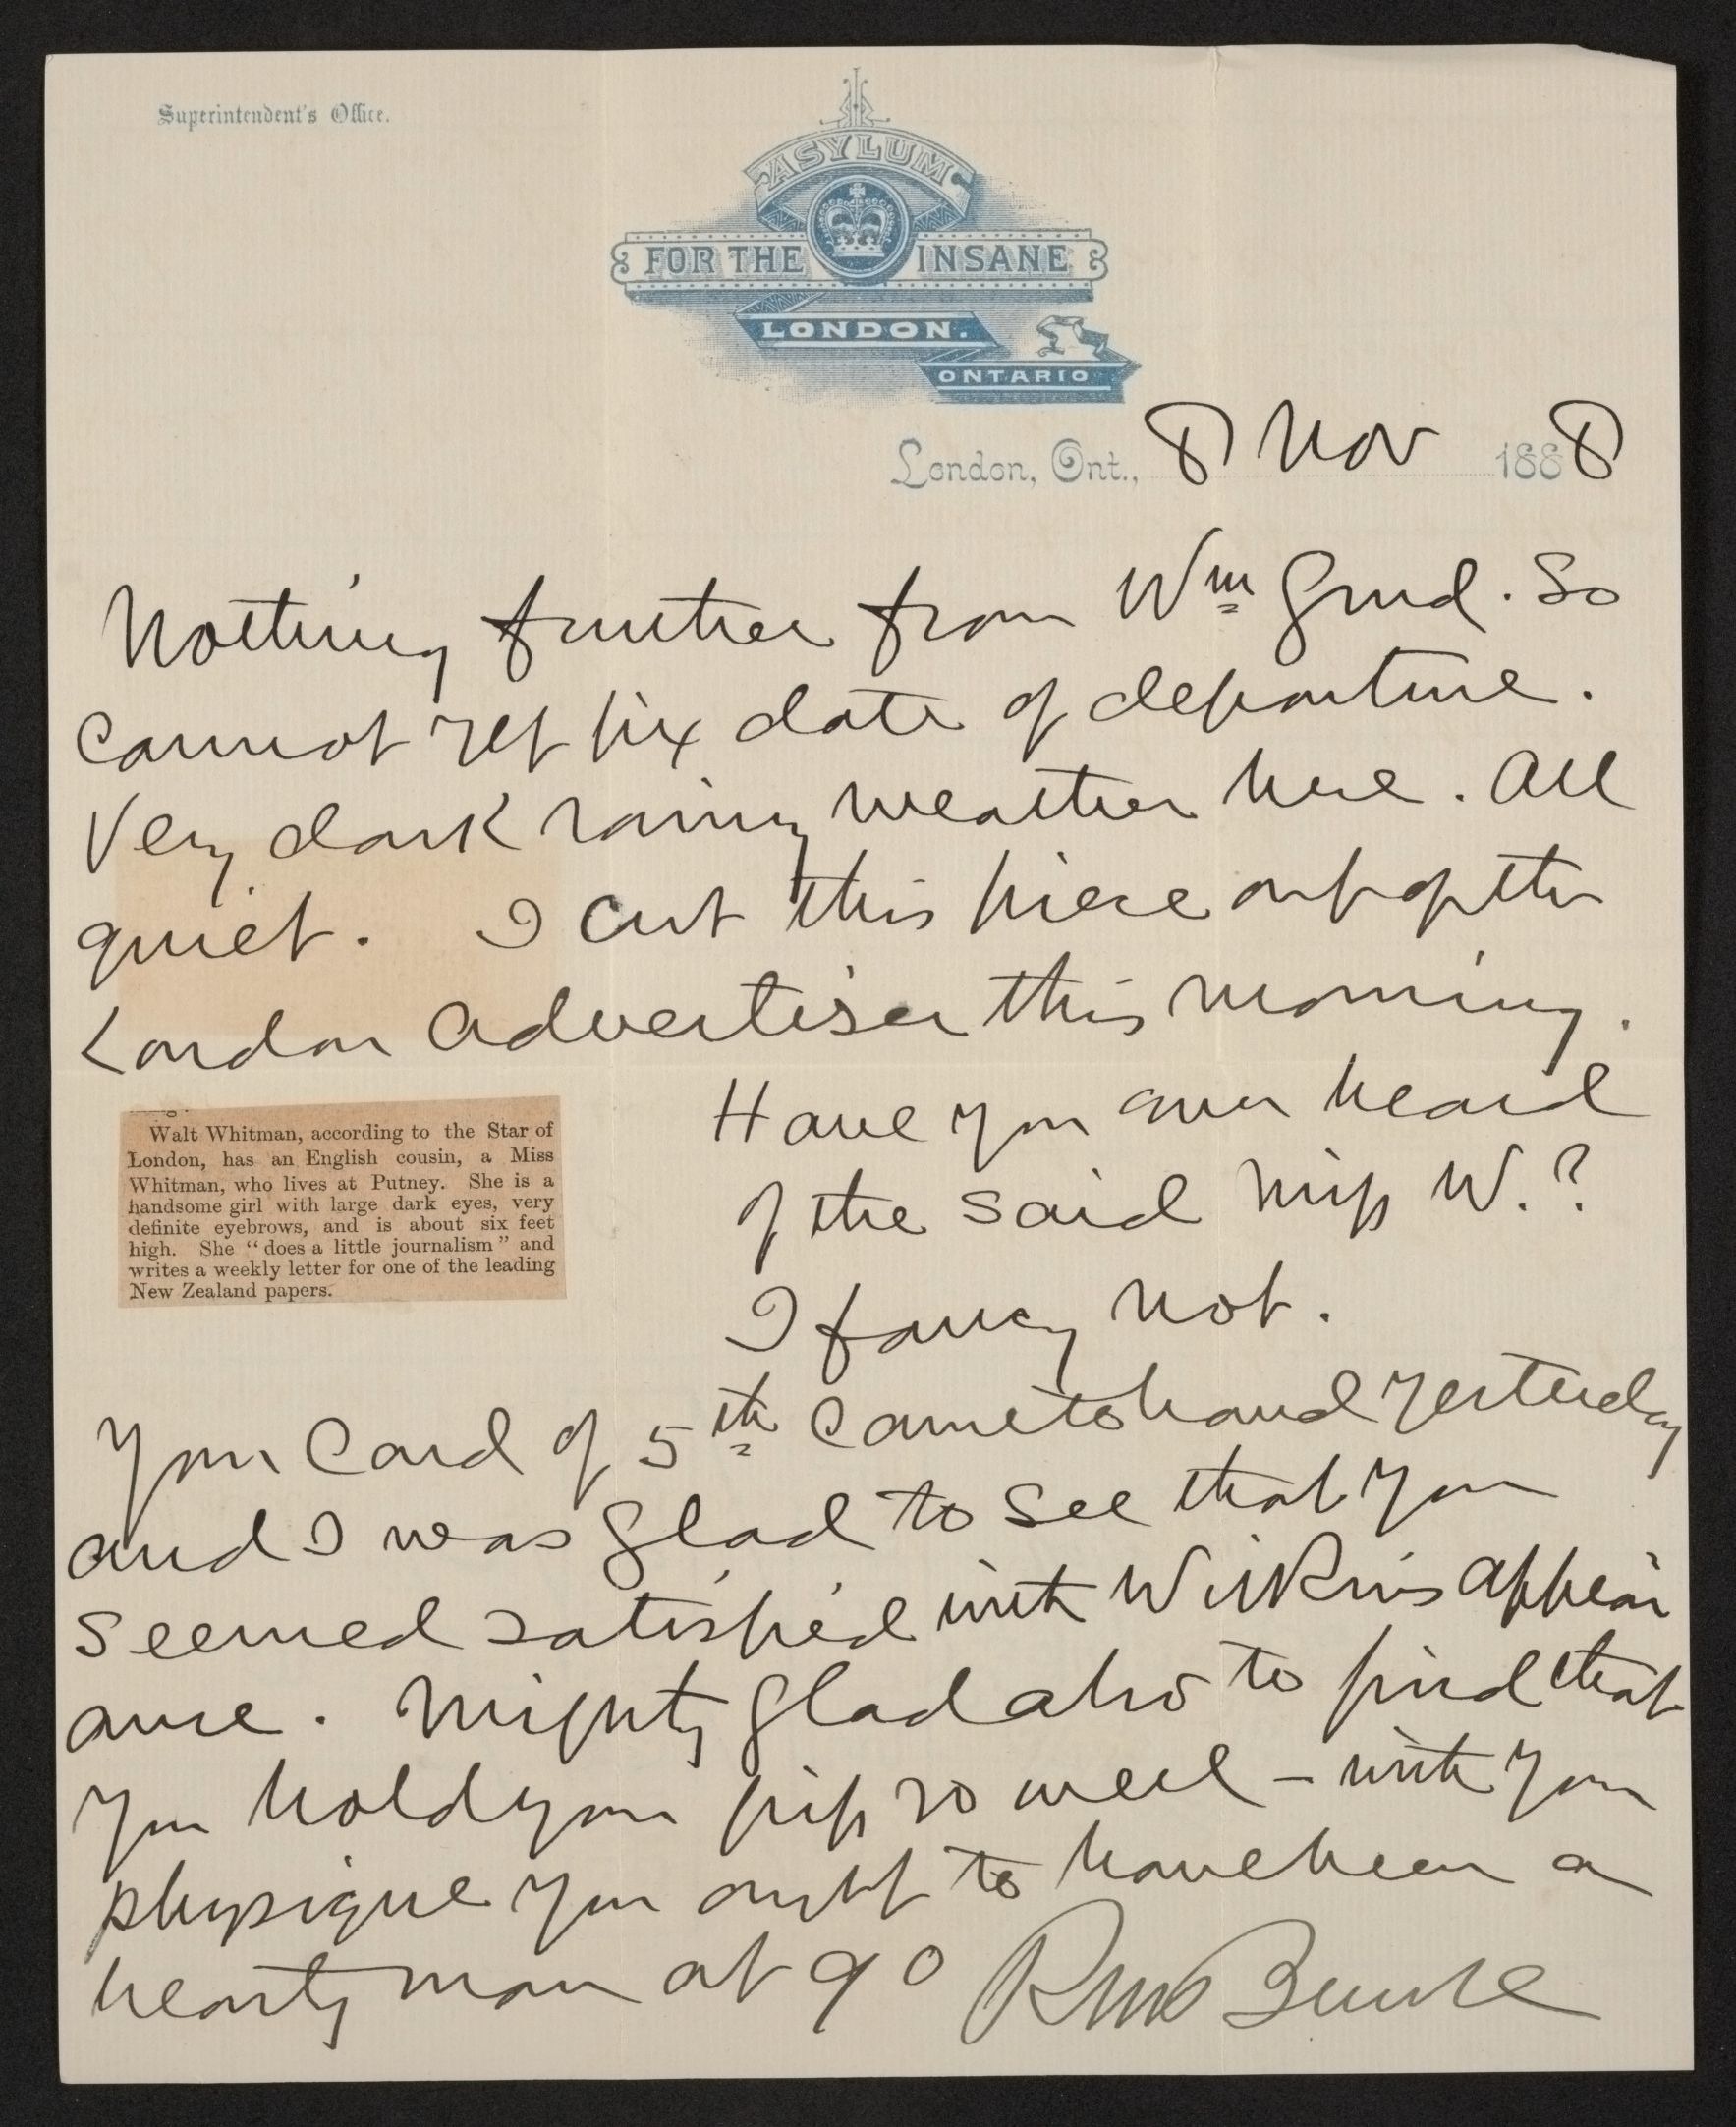 Superintendent's Office.
ASYLUM
FOR THE INSANE
LONDON.
ONTARIO
London, Ont., 8 Nov 1888
Nothing further from Wm Gurd. So
cannot yet fix date of departure.
Very dark rainy weather here. All
quiet. I cut this piece out of the
London Advertiser this morning.
Walt Whitman, according to the Star of
London, has an English cousin, a Miss
Whitman, who lives at Putney. She is a
handsome girl with large dark eyes, very
definite eyebrows, and is about six feet
high. She "does a little journalism" and
writes a weekly letter for one of the leading
New Zealand papers.
Have you ever heard
of the said Miss W.?
I fancy not.
Your Card of 5th came to hand yesterday
and I was glad to see that you
seemed satisfied with Wilkins appear
ance. Mighty glad also to find that
you hold your grip so well – with your
physique you ought to have been a
hearty man at 90 RM Bucke